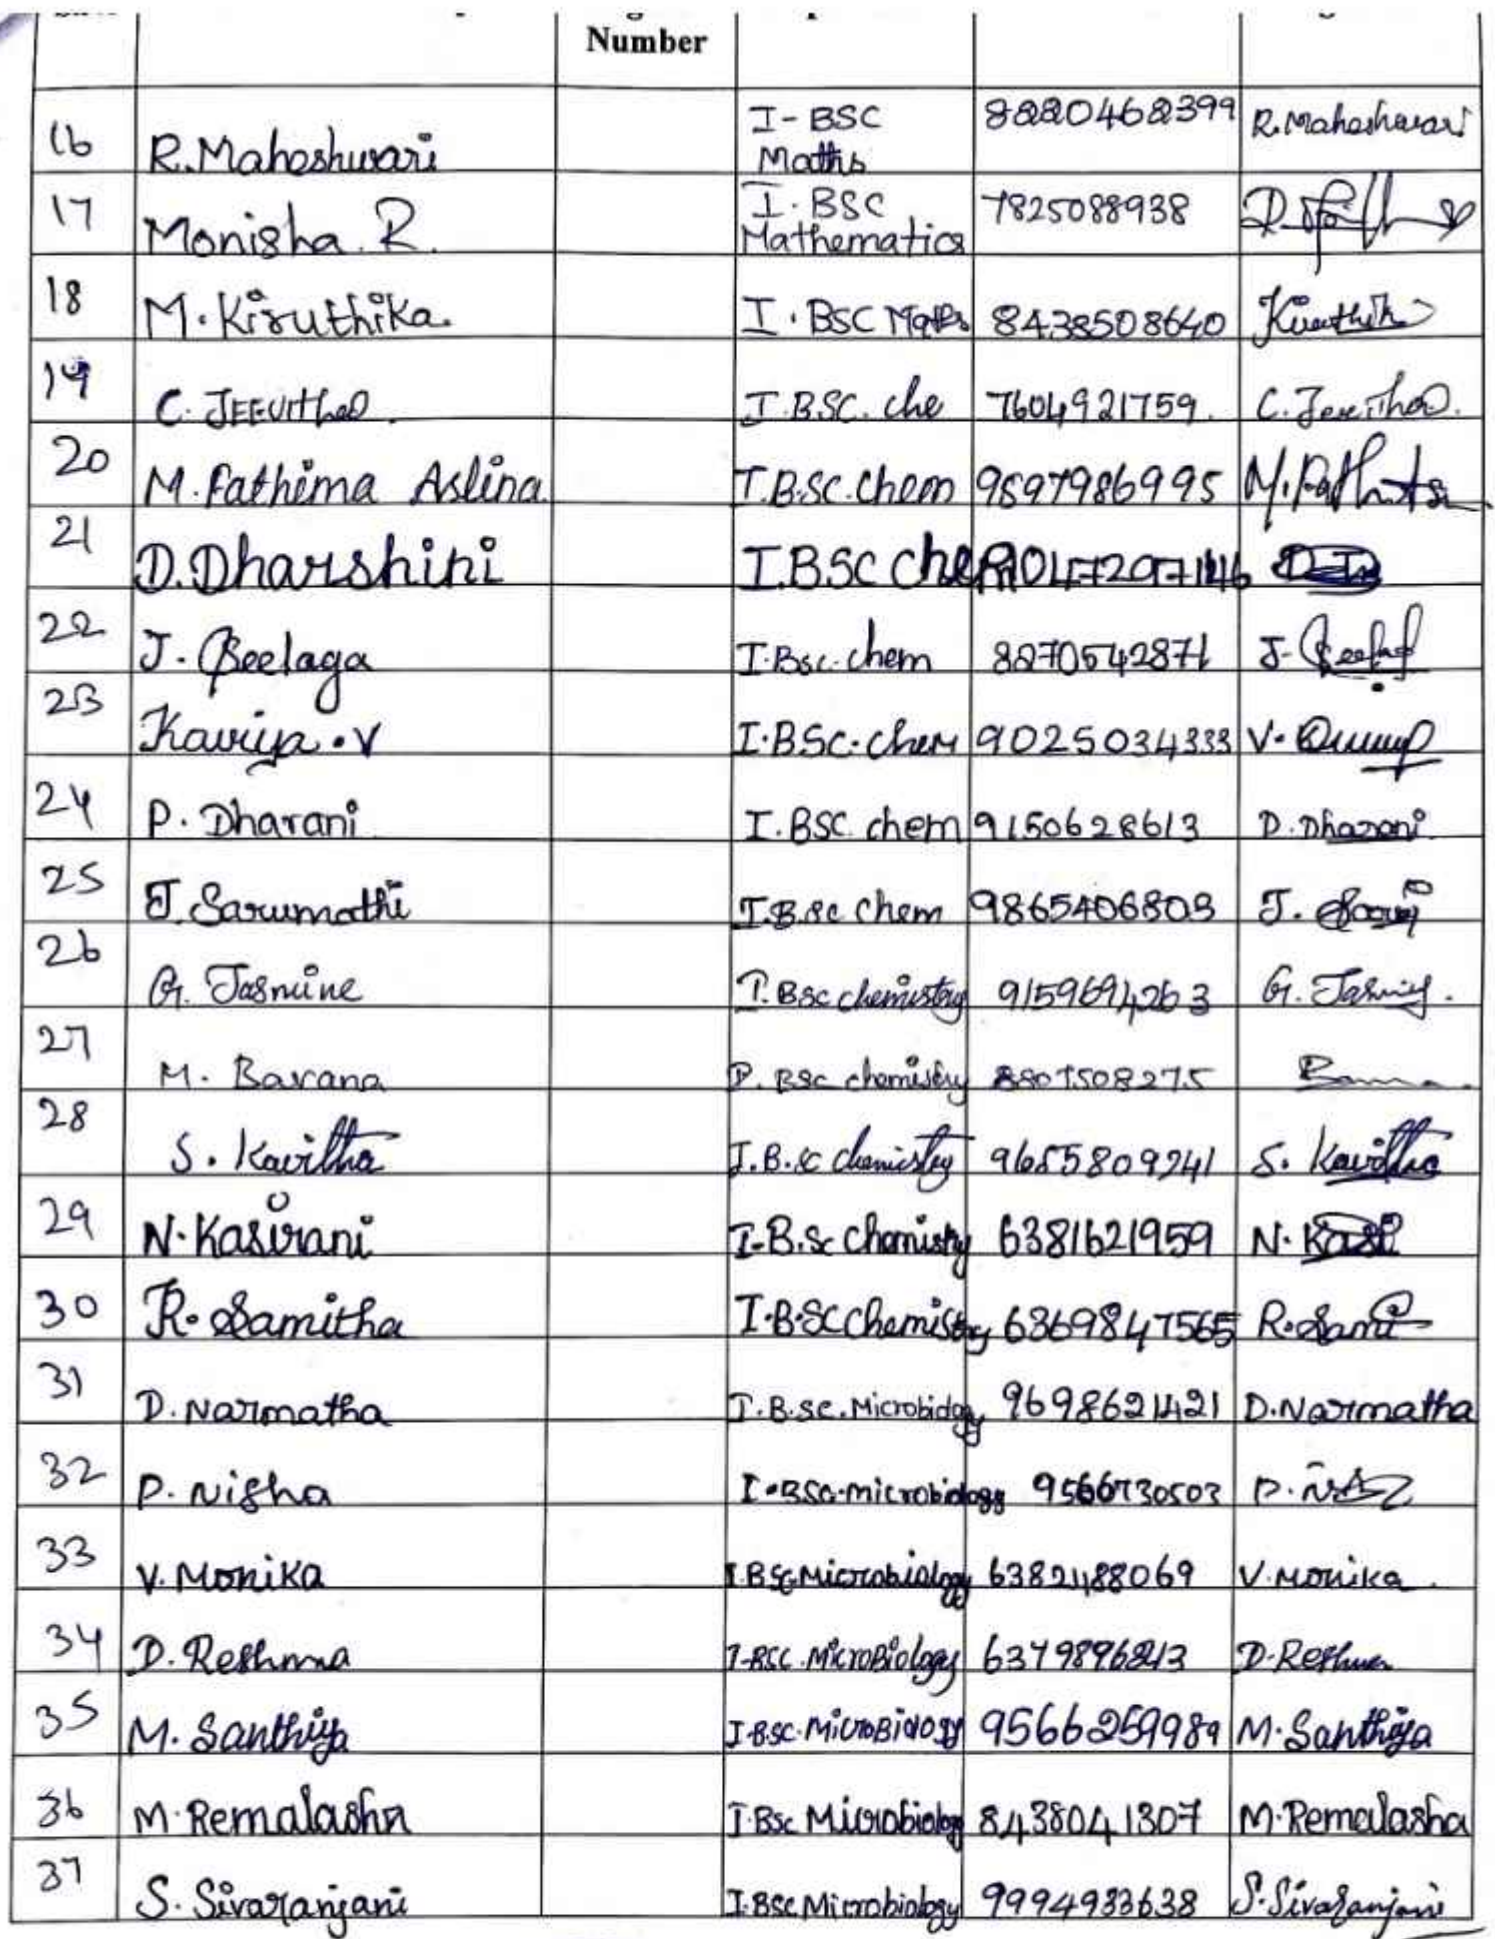 Number
16 R.Maheshwari I-BSC Maths 8220468399 R.Maheshwari
17 Monisha.R. I.BSC Mathematics 7825088938
18 M.Kiruthika. I.BSC Maths 8438508640 Kiruthika
19 C.JEEVITHA. I.BSC.che 7604921759. C.Jeevitha.
20 M.Fathima Aslina I.BSC.chem 9597986995 M.Fathima
21 D.Dharshini I.BSC chem
22 J.Beelaga I.Bsc.chem 8270542871 J.
23 Kaviya.V I.BSC.chem 9025034333 V.
24 P.Dharani I.BSC.chem 9150628613 D.Dharani.
25 J.Sarumathi I.B.sc chem 9865406803 J.
26 G.Jasmine I.Bsc chemistry 9159694263 G.
27 M.Barana I.Bsc chemistry
28 S.Kavitha I.B.sc chemistry 9655809241 S.Kavitha
29 N.Kasirani I-B.Sc chemistry 6381621959 N.Kasi
30 R.Samitha I.B.SC Chemistry 6369847565 R.Sami
31 D.Narmatha I.B.sc.Microbiology 9698621421 D.Narmatha
32 P.Nisha I.BSc.microbiology 9566730503 P.
33 V.Monika I.BSc.Microbiology 6382188069 V.Monika.
34 D.Reshma I-BSC.MicroBiology 6379896213 D.Reshma
35 M.Santhiya I.BSC.MicroBiology 9566259989 M.Santhiya
36 M.Remalasha I.Bsc Microbiology 8438041307 M.Remalasha
37 S.Sivaranjani I.BSc Microbiology 9994933638 S.Sivaranjani